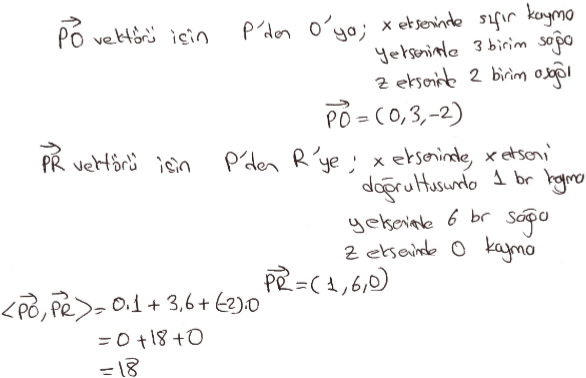 PO vektörü için P'den O'ya; x ekseninde sıfır kayma
y ekseninde 3 birim sağa
z eksende 2 birim aşağı
PO = (0,3,-2)
PR vektörü için P'den R'ye; x ekseninde, x ekseni
doğrultusunda 1 br kayma
y ekseninde 6 br sağa
z ekseninde 0 kayma
PR = (1,6,0)
<PO, PR> = 0.1 + 3.6 + (-2).0
= 0 + 18 + 0
= 18